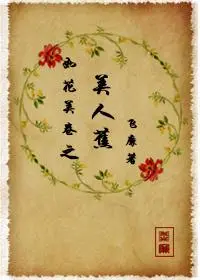 如花美卷之
美人蕉
飞廉著